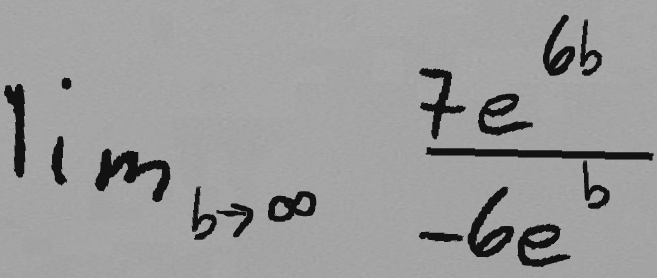 lim b→∞ 7e^6b / -6e^b